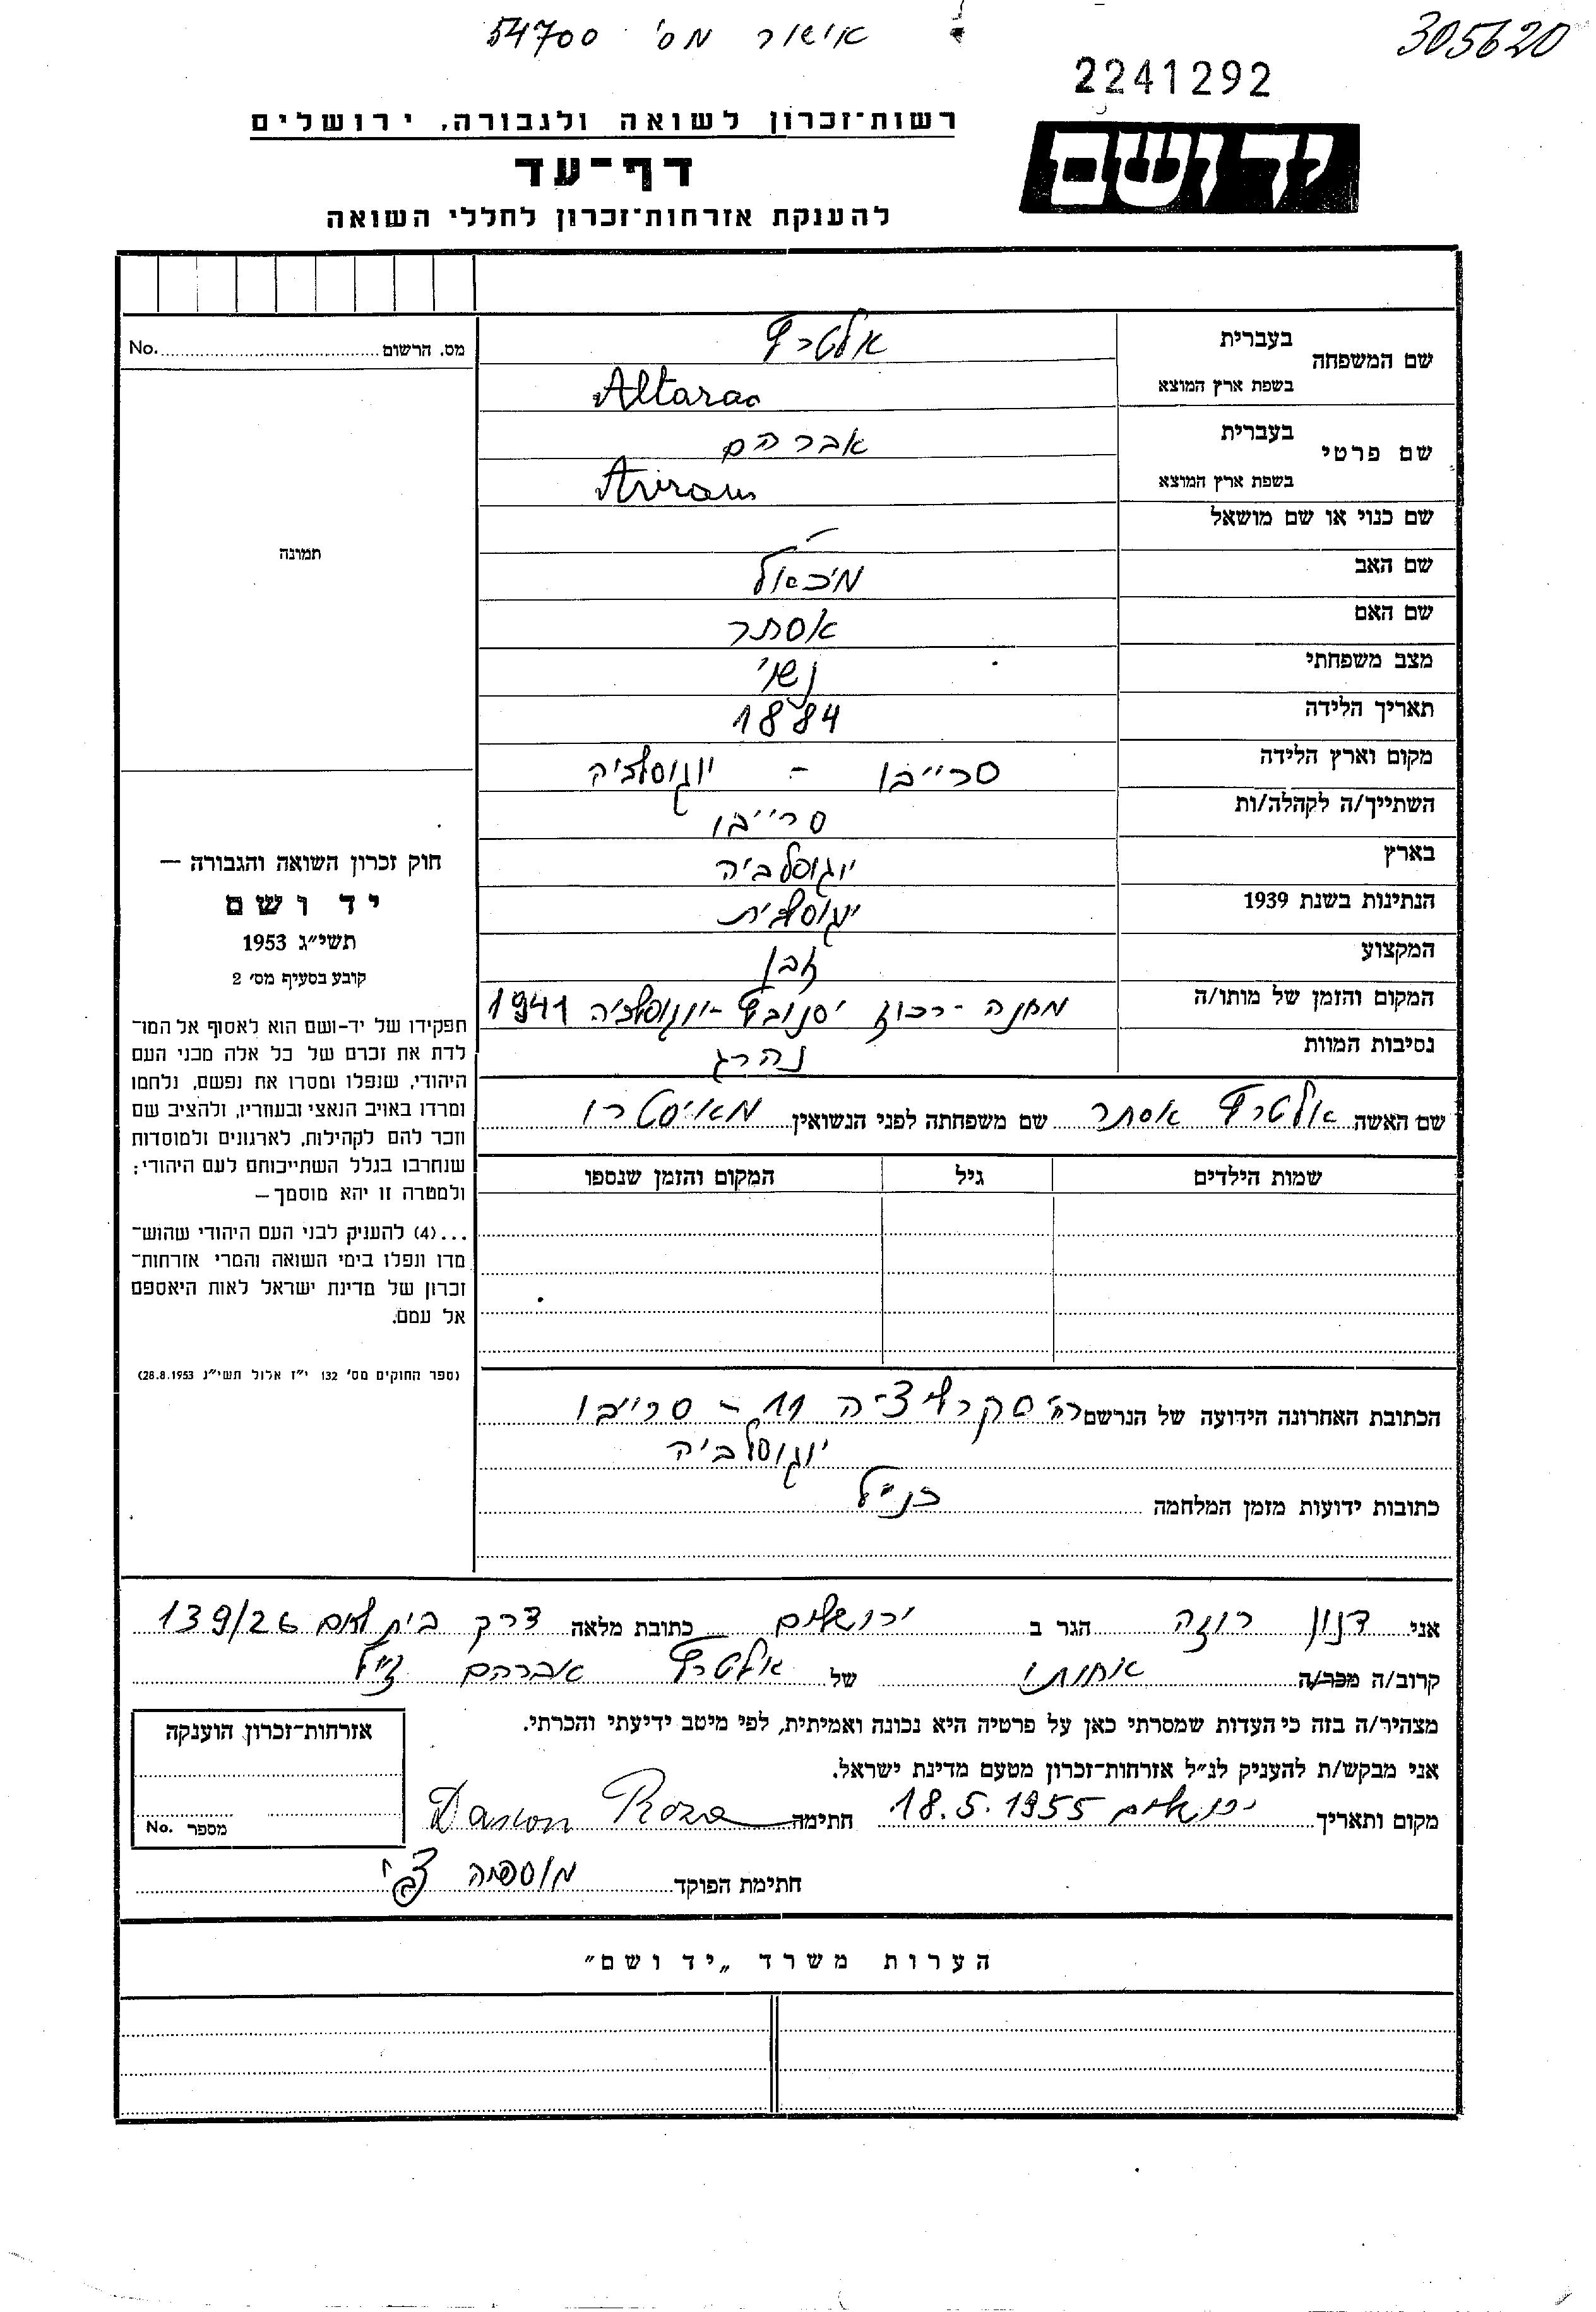 אישור מס' 54700
305620
2241292
יד ושם
רשות־זכרון לשואה ולגבורה, ירושלים
דף־עד
להענקת אזרחות־זכרון לחללי השואה
מס. הרשום No.
שם המשפחה
בעברית אלטרץ
בשפת ארץ המוצא Altarac
שם פרטי
בעברית אברהם
בשפת ארץ המוצא Avram
שם כנוי או שם מושאל —
שם האב מיכאל
שם האם אסתר
מצב משפחתי נשוי
תאריך הלידה 1884
מקום וארץ הלידה סרייבו - יוגוסלביה
השתייך/ה לקהלה/ות סרייבו
בארץ יוגוסלביה
הנתינות בשנת 1939 יוגוסלבית
המקצוע
המקום והזמן של מותו/ה מחנה-רכוז יסנובץ - יוגוסלביה 1941
נסיבות המוות נהרג
תמונה
חוק זכרון השואה והגבורה —
יד ושם
תשי״ג 1953
קובע בסעיף מס׳ 2
תפקידו של יד-ושם הוא לאסוף אל המו־
לדת את זכרם של כל אלה מבני העם
היהודי, שנפלו ומסרו את נפשם, נלחמו
ומרדו באויב הנאצי ובעוזריו, ולהציב שם
וזכר להם לקהילות, לארגונים ולמוסדות
שנחרבו בגלל השתייכותם לעם היהודי;
ולמטרה זו יהא מוסמך —
...(4) להעניק לבני העם היהודי שהוש־
מדו ונפלו בימי השואה והמרי אזרחות־
זכרון של מדינת ישראל לאות היאספם
אל עמם.
(ספר החוקים מס׳ 132 י״ז אלול תשי״ג 28.8.1953)
שם האשה אלטרץ אסתר שם משפחתה לפני הנשואין מאיסטרו
שמות הילדים גיל המקום והזמן שנספו
הכתובת האחרונה הידועה של הנרשם 11 - סרייבו
יוגוסלביה
כתובות ידועות מזמן המלחמה כנ״ל
אני דנון רוזה הגר ב ירושלים כתובת מלאה דרך בית לחם 139/26
קרוב/ה מכר/ה אחותו של אלטרץ אברהם ז״ל
מצהיר/ה בזה כי העדות שמסרתי כאן על פרטיה היא נכונה ואמיתית, לפי מיטב ידיעתי והכרתי.
אני מבקש/ת להעניק לנ״ל אזרחות־זכרון מטעם מדינת ישראל.
מקום ותאריך ירושלים 18.5.1955 חתימה Danon Roza
חתימת הפוקד מוספיה צבי
אזרחות-זכרון הוענקה
מספר No.
הערות משרד „יד ושם״